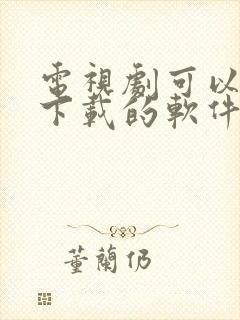 電視劇可以
下載的軟件
董蘭仍